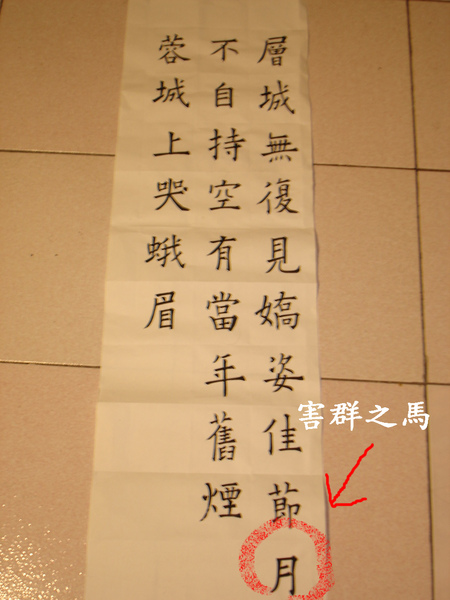 層城無復見嬌姿佳節月
不自持空有當年舊煙
蓉城上哭蛾眉
害群之馬